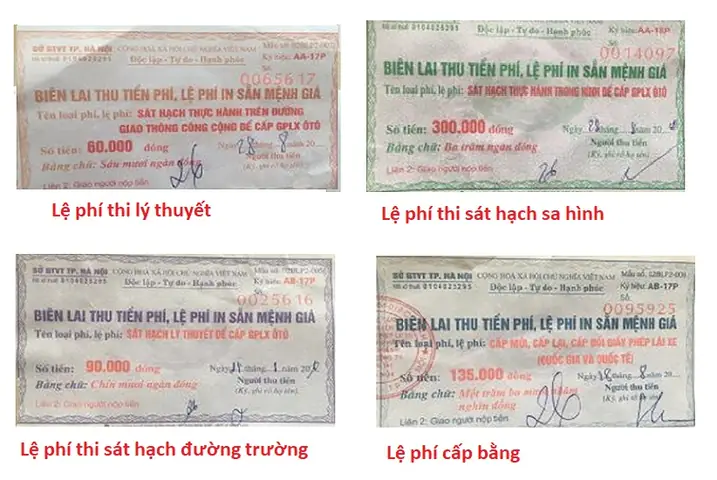 SỞ GTVT TP. HÀ NỘI
CỘNG HOÀ XÃ HỘI CHỦ NGHĨA VIỆT NAM
Mã số thuế: 0104025295
Độc lập - Tự do - Hạnh phúc
Ký hiệu: AA-17P
Số:
0065617
BIÊN LAI THU TIỀN PHÍ, LỆ PHÍ IN SẴN MỆNH GIÁ
Tên loại phí, lệ phí: SÁT HẠCH THỰC HÀNH TRÊN ĐƯỜNG
GIAO THÔNG CÔNG CỘNG ĐỂ CẤP GPLX ÔTÔ
Số tiền: 60.000 đồng
Ngày 28 8 20
Bằng chữ: Sáu mươi ngàn đồng
Người thu tiền
(Ký, ghi rõ họ tên)
Liên 2: Giao người nộp tiền
26
Lệ phí thi lý thuyết
Mã số thuế: 0104025295
Độc lập - Tự do - Hạnh phúc
Ký hiệu: AA-18P
Số:
0014097
BIÊN LAI THU TIỀN PHÍ, LỆ PHÍ IN SẴN MỆNH GIÁ
Tên loại phí, lệ phí: SÁT HẠCH THỰC HÀNH TRONG HÌNH ĐỂ CẤP GPLX ÔTÔ
Số tiền: 300.000 đồng
Ngày 28 8 20
Bằng chữ: Ba trăm ngàn đồng
Người thu tiền
(Ký, ghi rõ họ tên)
Liên 2: Giao người nộp tiền
26
Lệ phí thi sát hạch sa hình
SỞ GTVT TP. HÀ NỘI
CỘNG HOÀ XÃ HỘI CHỦ NGHĨA VIỆT NAM
Mã số thuế: 0104025295
Độc lập - Tự do - Hạnh phúc
Ký hiệu: AB-17P
Số:
0025616
BIÊN LAI THU TIỀN PHÍ, LỆ PHÍ IN SẴN MỆNH GIÁ
Tên loại phí, lệ phí: SÁT HẠCH LÝ THUYẾT ĐỂ CẤP GPLX ÔTÔ
Số tiền: 90.000 đồng
Ngày tháng 20
Bằng chữ: Chín mươi ngàn đồng
Người thu tiền
(Ký, ghi rõ họ tên)
Liên 2: Giao người nộp tiền
Lệ phí thi sát hạch đường trường
SỞ GTVT TP. HÀ NỘI
CỘNG HOÀ XÃ HỘI CHỦ NGHĨA VIỆT NAM
Mã số thuế: 0104025295
Độc lập - Tự do - Hạnh phúc
Ký hiệu: AB-17P
Số:
0095925
BIÊN LAI THU TIỀN PHÍ, LỆ PHÍ IN SẴN MỆNH GIÁ
Tên loại phí, lệ phí: CẤP MỚI, CẤP LẠI, CẤP ĐỔI GIẤY PHÉP LÁI XE
(QUỐC GIA VÀ QUỐC TẾ)
Số tiền: 135.000 đồng
Ngày 28 8 20
Bằng chữ: Một trăm ba mươi lăm
nghìn đồng
Người thu tiền
(Ký, ghi rõ họ tên)
Liên 2: Giao người nộp tiền
26
Lệ phí cấp bằng